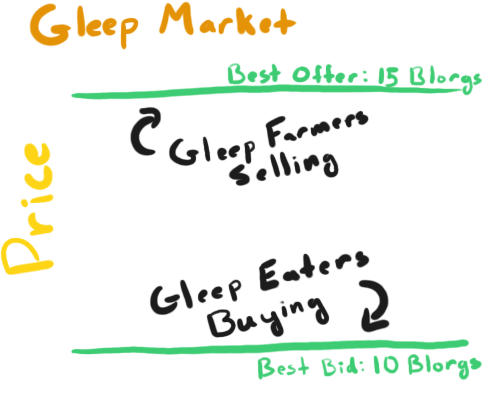 Gleep Market
Best Offer: 15 Blorgs
Gleep Farmers
Selling
Price
Gleep Eaters
Buying
Best Bid: 10 Blorgs